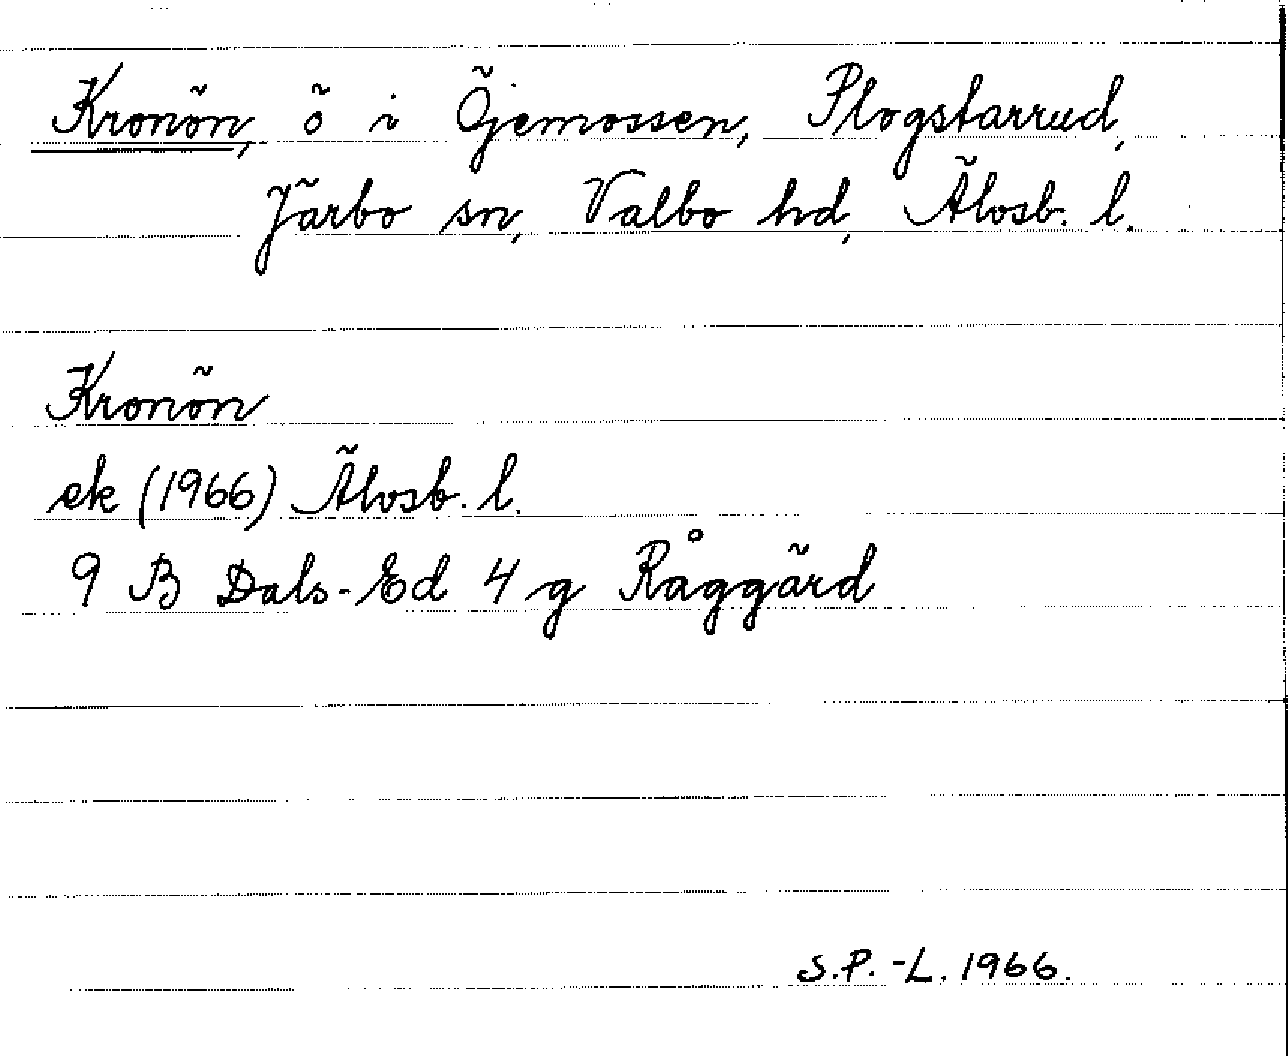 Kronön, ö i Öjemossen, Plogstarrud,
Järbo sn, Valbo hd, Älvsb. l.
Kronön
ek (1966) Älvsb. l.
9 B Dals-Ed 4 g Råggärd
S.P.-L. 1966.